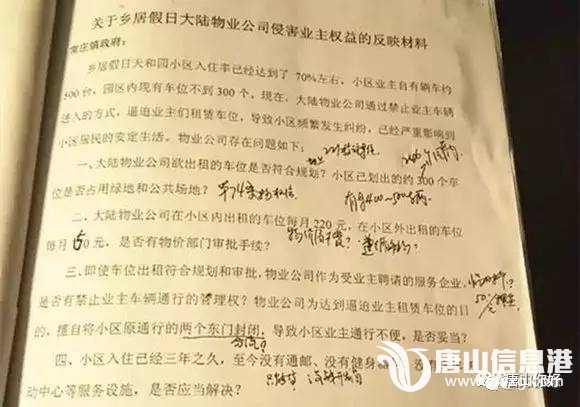 关于乡居假日大陆物业公司侵害业主权益的反映材料
常庄镇政府:
乡居假日天和园小区入住率已经达到了 70%左右，小区业主自有辆车约
500台，园区内现有车位不到 300 个，现在，大陆物业公司通过禁止业主车辆
进入的方式，逼迫业主们租赁车位，导致小区频繁发生纠纷，已经严重影响到
小区居民的安定生活。物业公司存在问题如下：
一、大陆物业公司欲出租的车位是否符合规划？小区已划出的约 300 个车
位是否占用绿地和公共场地？
二、大陆物业公司在小区内出租的车位每月 220 元，在小区外出租的车位
每月 50 元，是否有物价部门审批手续？
三、即使车位出租符合规划和审批，物业公司作为受业主聘请的服务企业，
是否有禁止业主车辆通行的管理权？物业公司为达到逼迫业主租赁车位的目
的，擅自将小区原通行的两个东门封闭，导致小区业主通行不便，是否妥当？
四、小区入住已经三年之久，至今没有通邮，没有健身器
动中心等服务设施，是否应当解决？
唐山信息港
唐山你好